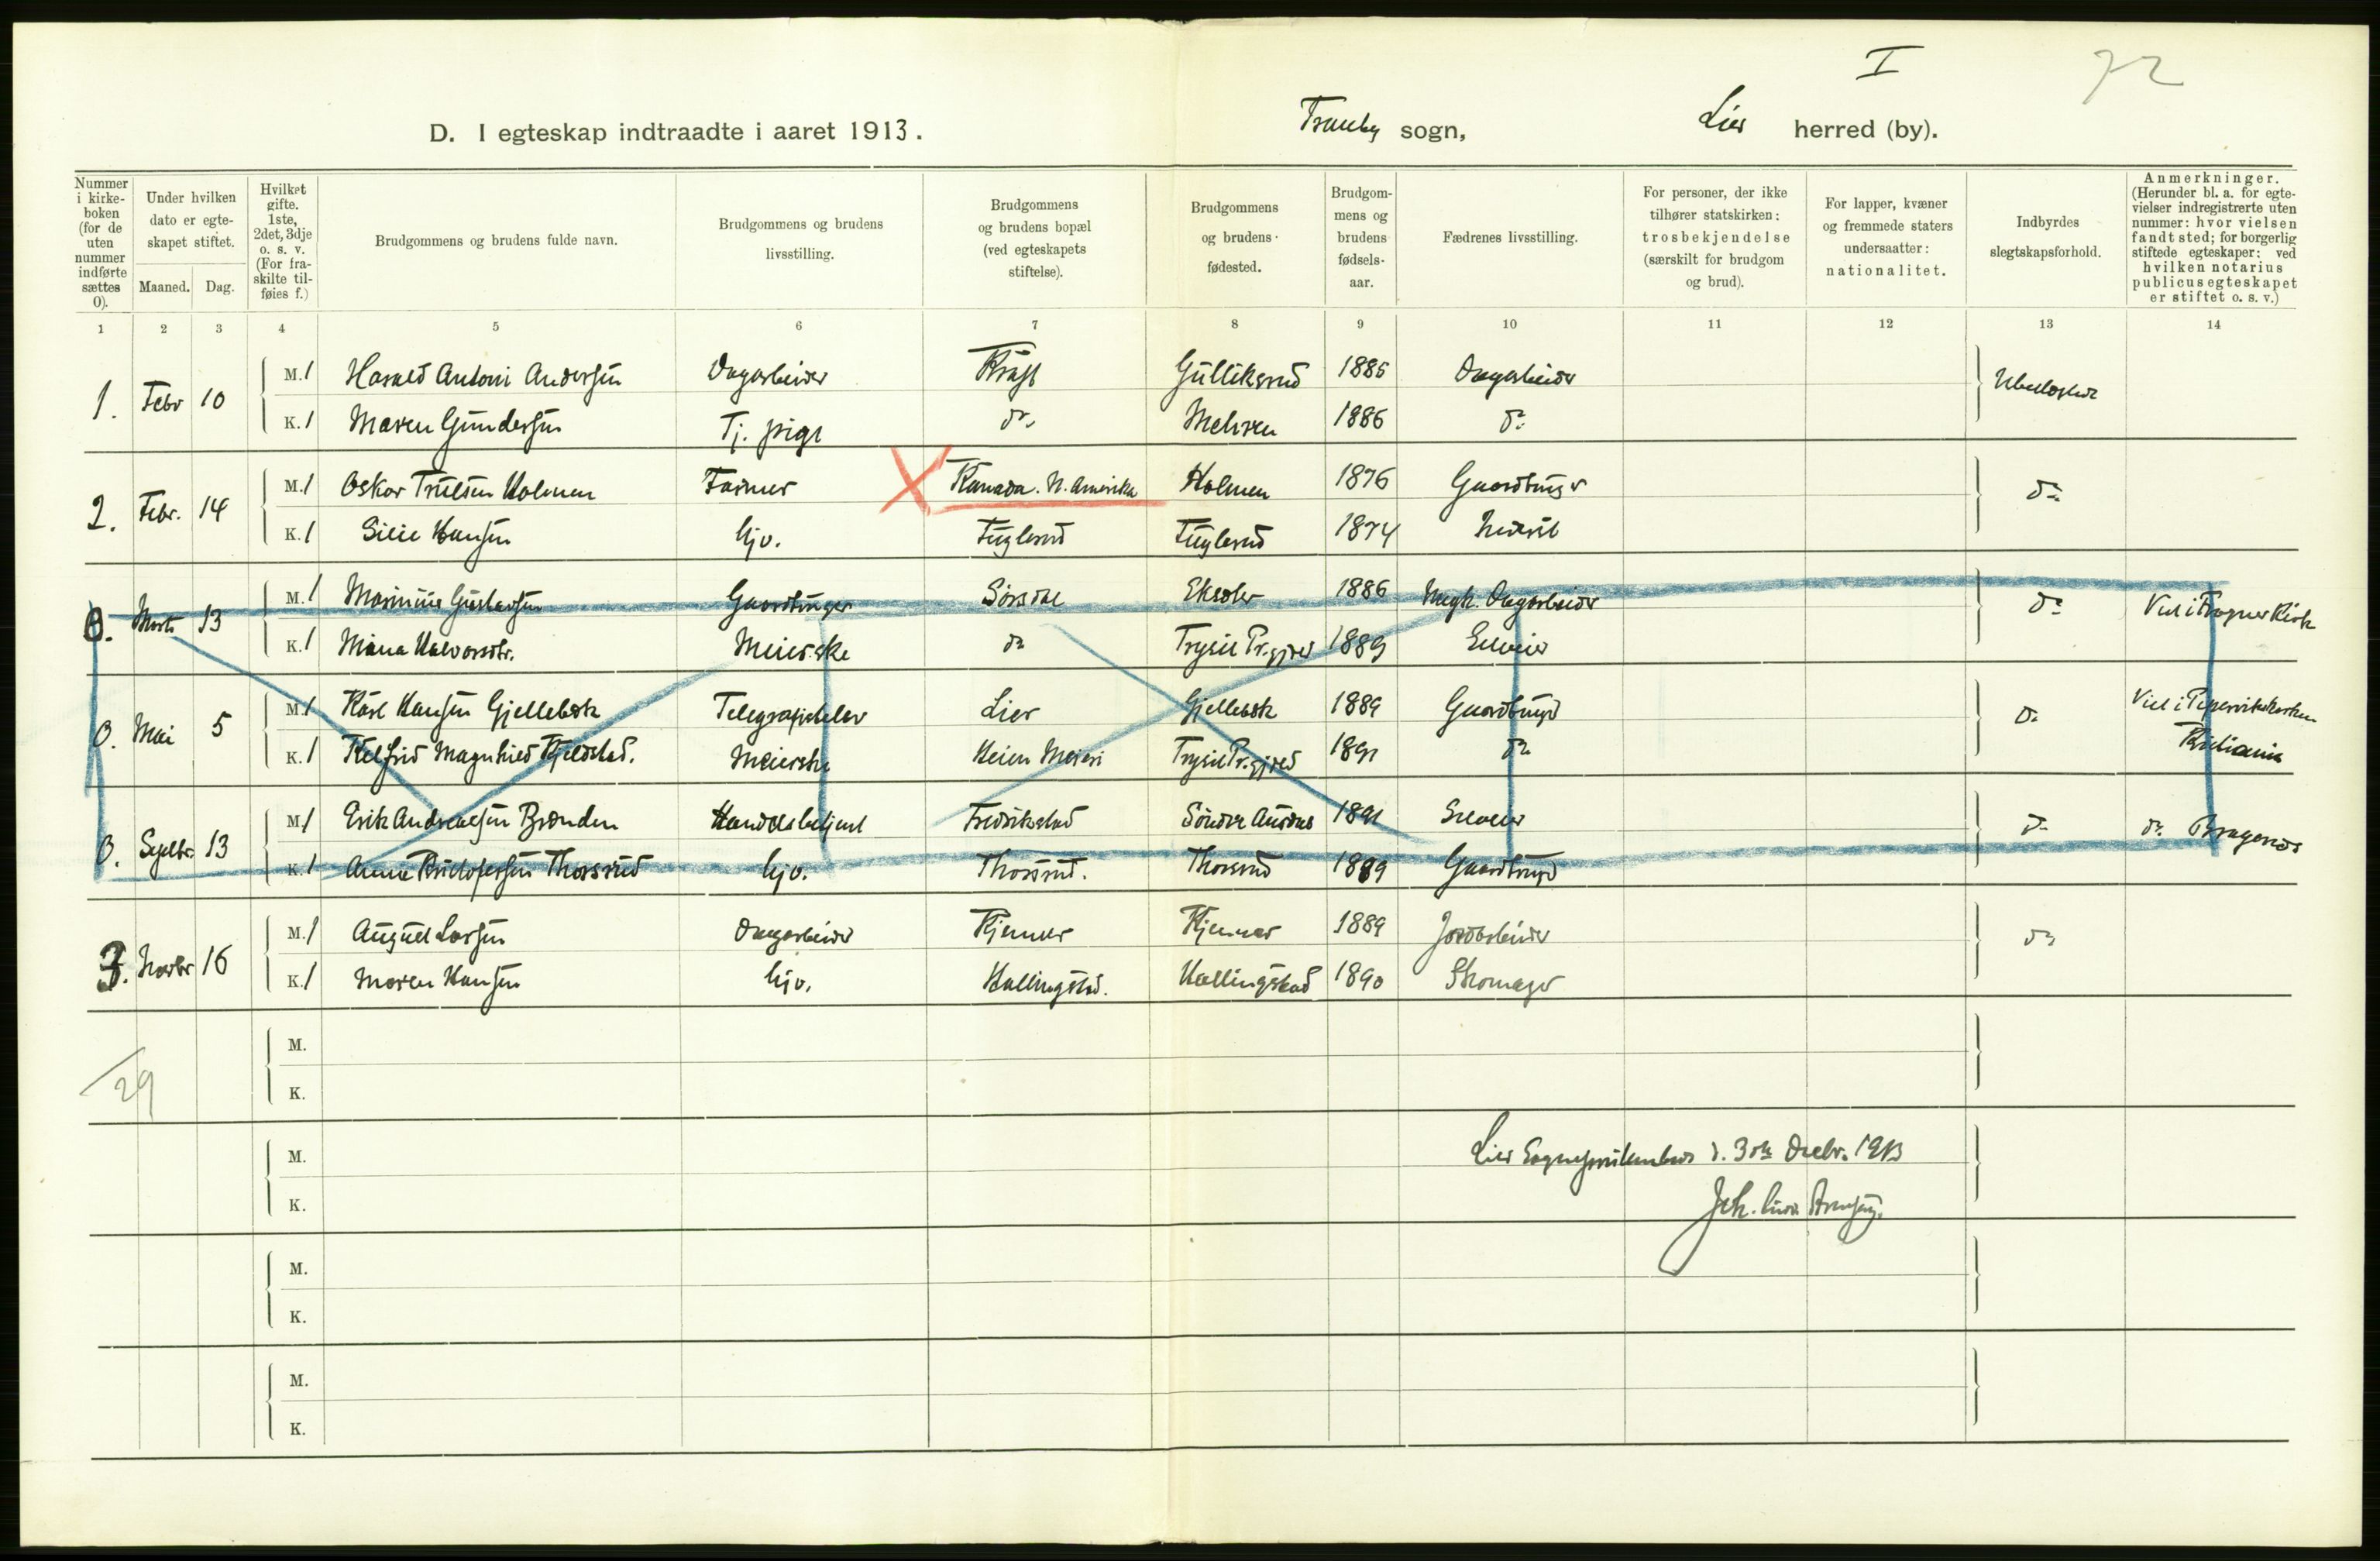 I
72
D. I egteskap indtraadte i aaret 1913.
Tranby sogn, Lier herred (by).
Nummer i kirkeboken (for de uten nummer indførte sættes 0).
Under hvilken dato er egteskapet stiftet.
Maaned. Dag.
Hvilket gifte. 1ste, 2det, 3dje o. s. v. (For fraskilte tilføies f.)
Brudgommens og brudens fulde navn.
Brudgommens og brudens livsstilling.
Brudgommens og brudens bopæl (ved egteskapets stiftelse).
Brudgommens og brudens fødested.
Brudgommens og brudens fødselsaar.
Fædrenes livsstilling.
For personer, der ikke tilhører statskirken: trosbekjendelse (særskilt for brudgom og brud).
For lapper, kvæner og fremmede staters undersaatter: nationalitet.
Indbyrdes slegtskapsforhold.
Anmerkninger. (Herunder bl. a. for egtevielser indregistrerte uten nummer: hvor vielsen fandt sted; for borgerlig stiftede egteskaper: ved hvilken notarius publicus egteskapet er stiftet o. s. v.)
1 2 3 4 5 6 7 8 9 10 11 12 13 14
1. Febr 10 M. 1 Harald Antoni Andersen Dagarbeider Gulliksrud 1885 Dagarbeider Ubeslegtede
K. 1 Maren Gundersen Tj. pige do Mehren 1886 do
2. Febr. 14 M. 1 Oskar Trulsen Holmen Farmer Kanada. N. Amerika Holmen 1876 Gaardbruger do
K. 1 Silie Hansen hjv. Fuglerud Fuglerud 1874
0. Marts 13 M. 1 Marinius Gustavsen Gaardbruger Sørsdal Eksoler 1886 Ungk. Dagarbeider do Viet i Frogner Kirke
K. 1 Mina Halvorsdtr. Meierske do Trysil Pr.gjeld 1889 Selveier
0. Mai 5 M. 1 Karl Hansen Gjellebæk Telegrafistelev Lier Gjellebæk 1889 Gaardbruger do Viet i Pipervikskirken
K. 1 Magnhild Kjeldstad. Meierske Heien Meieri Trysil Pr.gjeld 1891 do Kristiania
0. Septbr. 13 M. 1 Erik Andreassen Brænden Handelsbetjent Fredrikstad Søndre Aurdal 1891 Selveier do do Bragernes
K. 1 Anna Kristofersen Thorsrud hjv. Thorsrud. Thorsrud 1889 Gaardbruger
3. Novbr 16 M. 1 August Larsen Dagarbeider Kjenner Kjenner 1889 Jordarbeider do
K. 1 Maren Hansen hjv. Hallingstad. Hallingstad 1890 Skomager
M.
K.
29
M.
Lier Sogneprestembede d. 31te Decbr. 1913
K.
Joh.
M.
K.
M.
K.